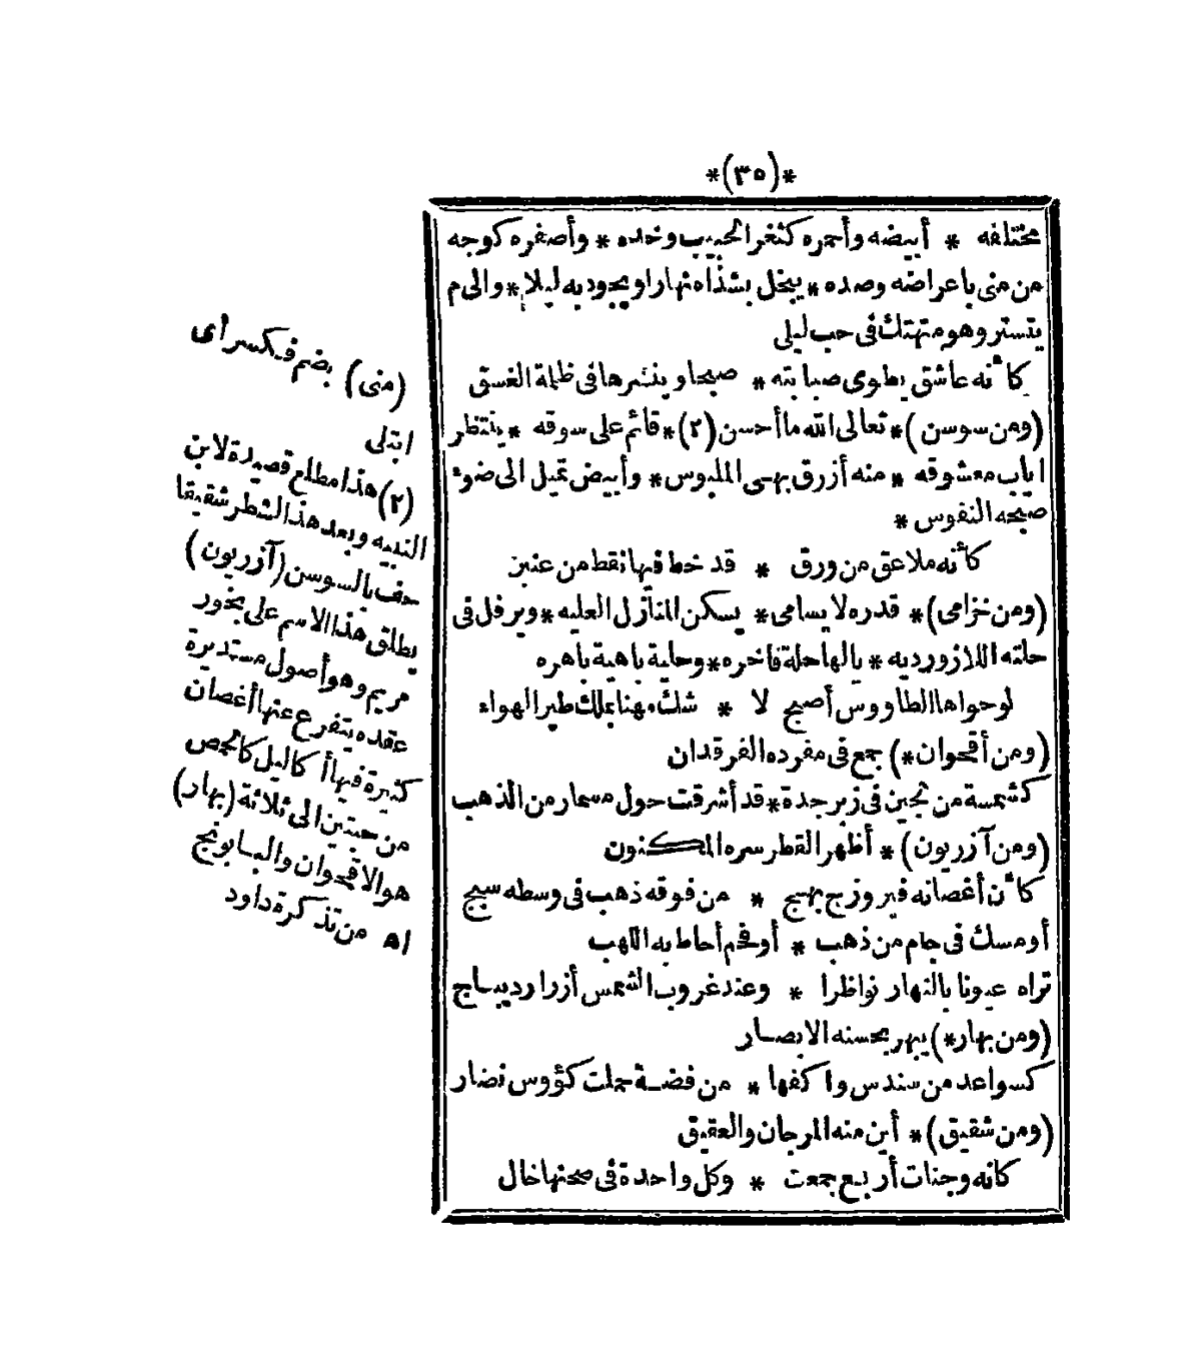 *(٣٥)*
مختلفه * أبيضه وأحمره كثغر الحبيب وخده * وأصفره كوجه
من منى باعراضه وصده * يبخل بشذاه نهارا ويجود به ليلا * والى م
يتستر وهو متهتك فى حب ليلى
كأنه عاشق يطوى صبابته * صبحا وينشرها فى ظلمة الغسق
(ومن سوسن) * تعالى الله ما أحسن (٢) * قائم على سوقه * ينتظر
اياب معشوقه * منه أزرق بهى الملبوس * وأبيض تميل الى ضوء
صبحه النفوس *
كأنه ملاعق من ورق * قد خط فيها نقط من عنبر
(ومن خزامى) * قدره لا يسامى * يسكن المنازل العليه * ويرفل فى
حلته اللازورديه * يالها حلة فاخره * وحلية باهية باهره
لو حواها الطاووس أصبح لا * شك مهنا بملك طير الهواء
(ومن أقحوان *) جمع فى مفرده الفرقدان
كشمسة من لجين فى زبرجدة * قد أشرقت حول مسمار من الذهب
(ومن آزريون) * أظهر القطر سره المكنون
كأن أغصانه فيروزج بهج * من فوقه ذهب فى وسطه سبج
أو مسك فى جام من ذهب * أو فحم أحاط به اللهب
تراه عيونا بالنهار نواظرا * وعند غروب الشمس أزرار ديباج
(ومن بهار *) يبهر بحسنه الابصار
كسواعد من سندس واكفها * من فضة حملت كؤوس نضار
(ومن شقيق) * أين منه المرجان والعقيق
كانه وجنات أربع جمعت * وكل واحدة فى صحنها خال
(منى) بضم فكسر أى
ابتلى
(٢) هذا مطلع قصيدة لابن
النبيه وبعد هذا الشطر شقيقا
حف بالسوسن (آزريون)
يطلق هذا الاسم على بخور
مريم وهو أصول مستديرة
عقده يتفرع عنها أغصان
كثيرة فيها أكاليل كالحمص
من حبتين الى ثلاثة (بهار)
هو الاقحوان والبابونج
اه من تذكرة داود